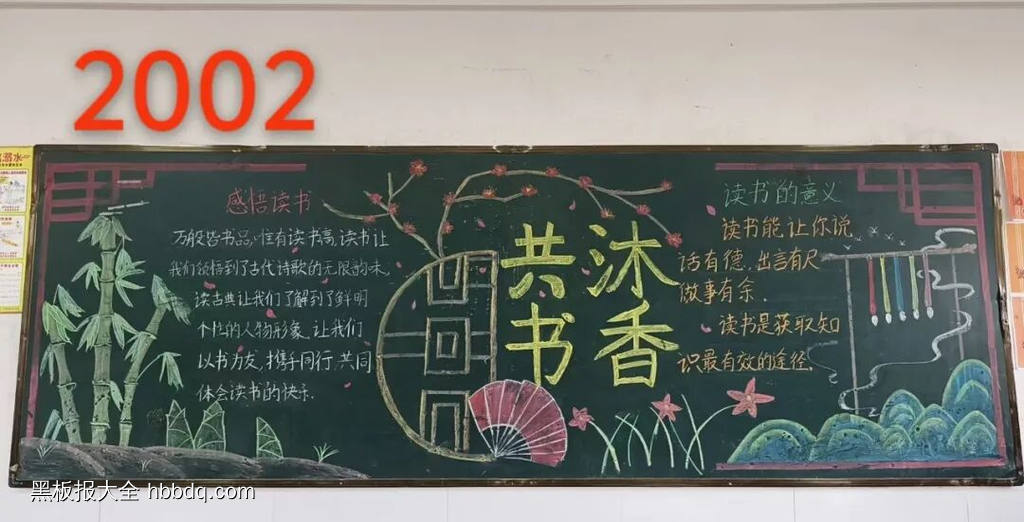 2002
溺水
感悟读书
万般皆书品,惟有读书高,读书让
我们领悟到了古代诗歌的无限韵味,
读古典让我们了解到了鲜明
个性的人物形象,让我们
以书为友,携手同行,共同
体会读书的快乐.
共 沐
书 香
读书的意义
读书能让你说
话有德,出言有尺
做事有余.
读书是获取知
识最有效的途径.
黑板报大全 hbbdq.com